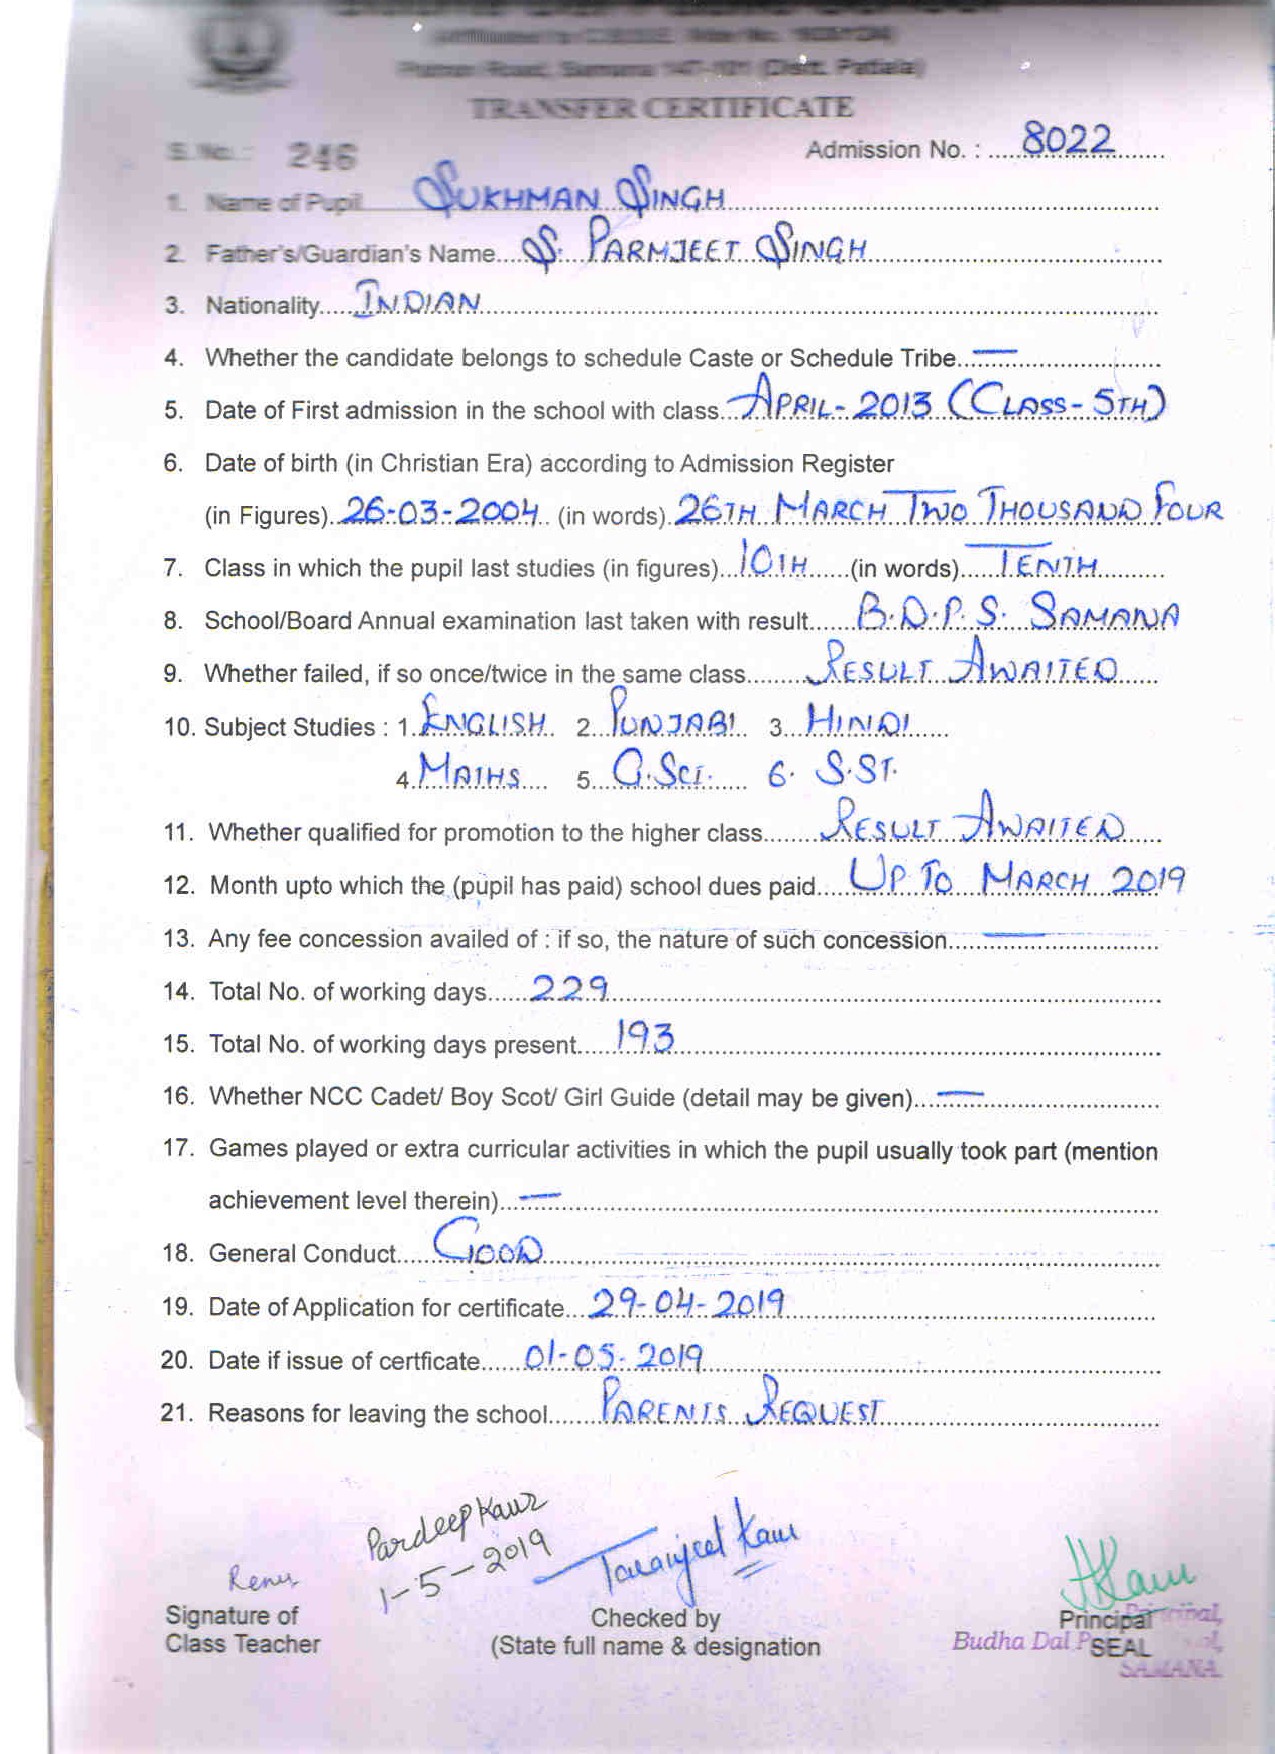 (Affiliated to C.B.S.E.
Patran Road, Samana 147-101 (Distt. Patiala)
TRANSFER CERTIFICATE
S. No. : 246 Admission No. : 8022
1. Name of Pupil SUKHMAN SINGH
2. Father's/Guardian's Name S. PARMJEET SINGH
3. Nationality INDIAN
4. Whether the candidate belongs to schedule Caste or Schedule Tribe —
5. Date of First admission in the school with class APRIL-2013 (CLASS-5TH)
6. Date of birth (in Christian Era) according to Admission Register
(in Figures) 26-03-2004 (in words) 26TH MARCH TWO THOUSAND FOUR
7. Class in which the pupil last studies (in figures) 10TH (in words) TENTH
8. School/Board Annual examination last taken with result B.D.P.S. SAMANA
9. Whether failed, if so once/twice in the same class RESULT AWAITED
10. Subject Studies : 1. ENGLISH 2. PUNJABI 3. HINDI
4. MATHS 5. G.SCI. 6. S.ST.
11. Whether qualified for promotion to the higher class RESULT AWAITED
12. Month upto which the (pupil has paid) school dues paid UP TO MARCH 2019
13. Any fee concession availed of : if so, the nature of such concession —
14. Total No. of working days 229
15. Total No. of working days present 193
16. Whether NCC Cadet/ Boy Scot/ Girl Guide (detail may be given) —
17. Games played or extra curricular activities in which the pupil usually took part (mention
achievement level therein) —
18. General Conduct GOOD
19. Date of Application for certificate 29-04-2019
20. Date if issue of certficate 01-05-2019
21. Reasons for leaving the school PARENTS REQUEST
Pardeep Kaur
1-5-2019
Renu Taranjeet Kaur
Signature of Checked by Principal
Class Teacher (State full name & designation SEAL
Principal,
Budha Dal
SAMANA